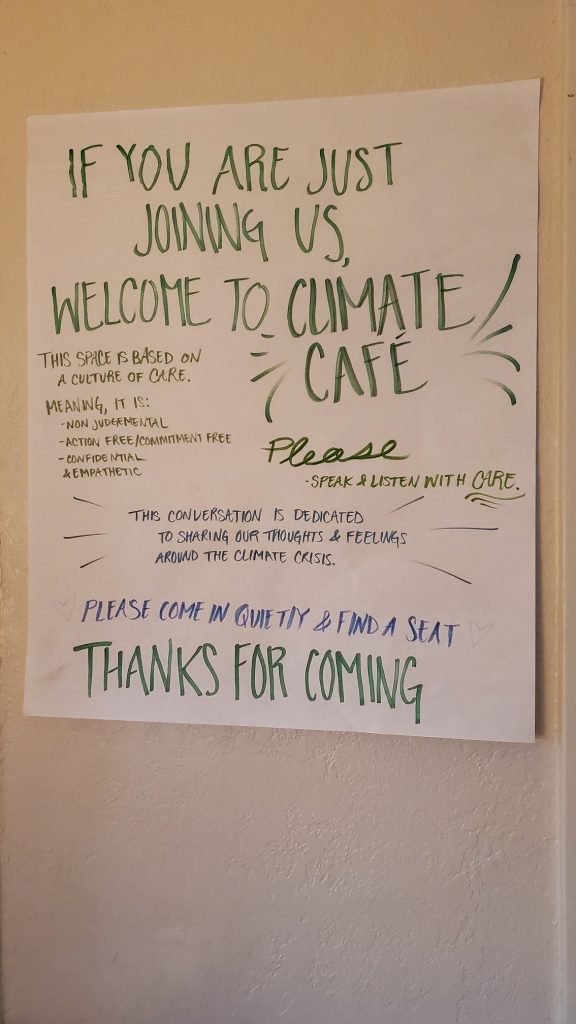 IF YOU ARE JUST
JOINING US,
WELCOME TO CLIMATE
CAFÉ
THIS SPACE IS BASED ON
A CULTURE OF CARE.
MEANING, IT IS:
- NON JUDGEMENTAL
- ACTION FREE/COMMITMENT FREE
- CONFIDENTIAL
& EMPATHETIC
Please
- SPEAK & LISTEN WITH CARE.
THIS CONVERSATION IS DEDICATED
TO SHARING OUR THOUGHTS & FEELINGS
AROUND THE CLIMATE CRISIS.
PLEASE COME IN QUIETLY & FIND A SEAT
THANKS FOR COMING